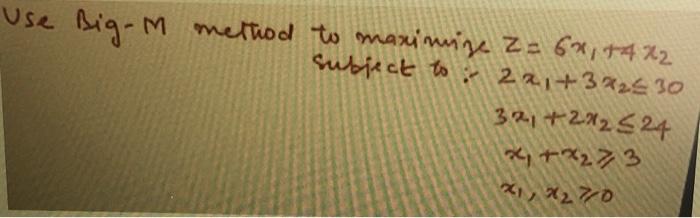 Use Big-M method to maximize Z = 6x₁ + 4x₂
Subject to :- 2x₁ + 3x₂ ≤ 30
3x₁ + 2x₂ ≤ 24
x₁ + x₂ ≥ 3
x₁, x₂ ≥ 0